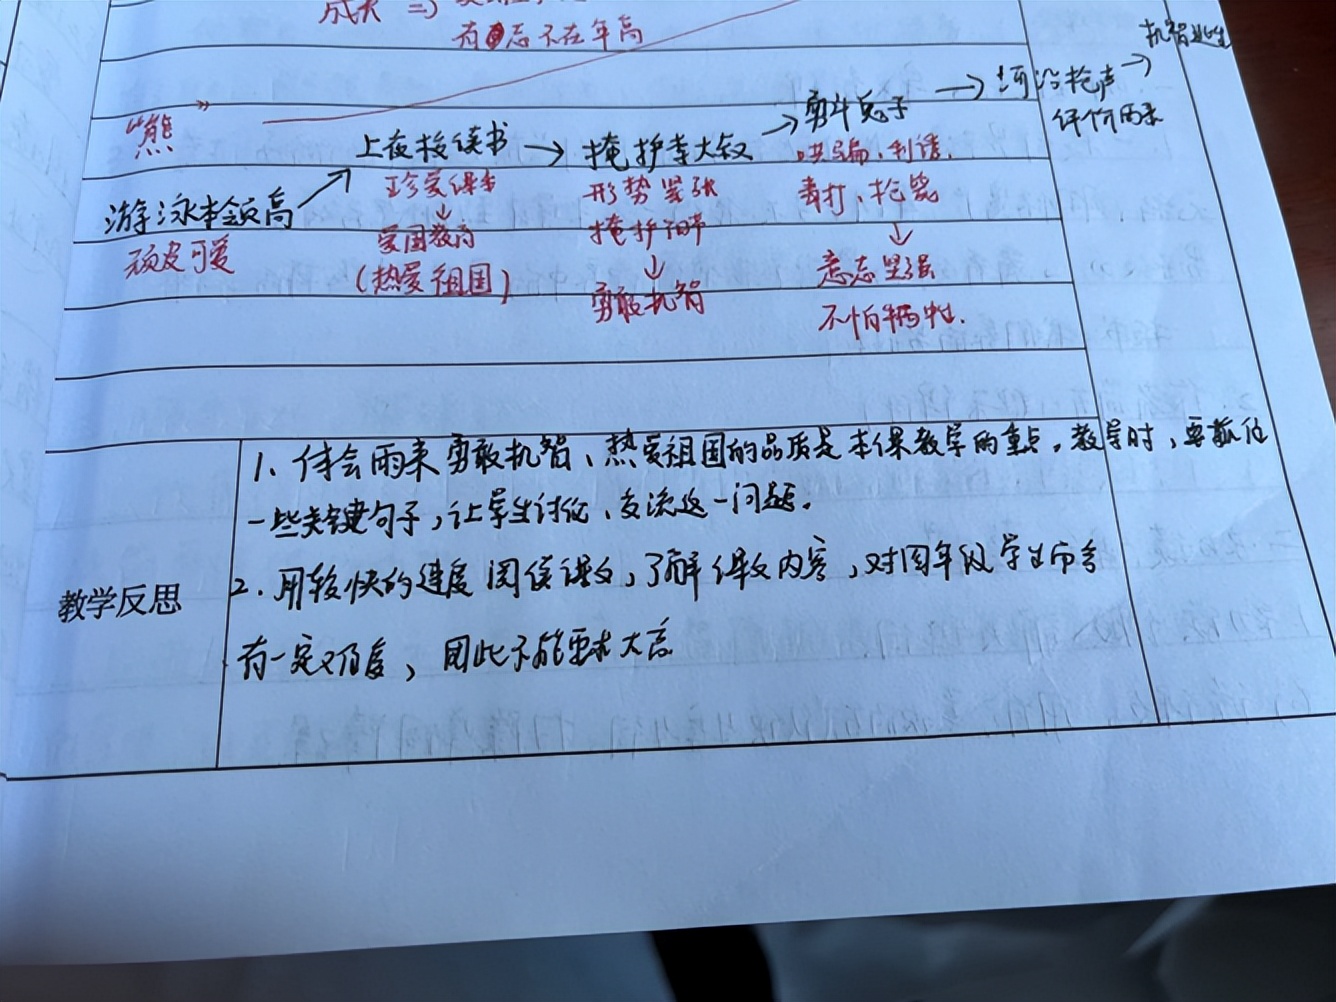 成大 ⇒
有志不在年高
"熊"
游泳本领高 → 上夜校读书 → 掩护李大叔 → 勇斗鬼子 → 河沿枪声 → 机智逃生
评价雨来
顽皮可爱
珍爱课本
↓
爱国教育
(热爱祖国)
形势紧张
掩护
↓
勇敢机智
哄骗、利诱.
毒打、枪毙
↓
意志坚强
不怕牺牲.
教学反思
1、体会雨来勇敢机智、热爱祖国的品质是本课教学的重点。教学时，要抓住
一些关键句子，让学生讨论、交流这一问题。
2.用较快的速度阅读课文，了解课文内容，对四年级学生而言
有一定难度，因此不能要求太高